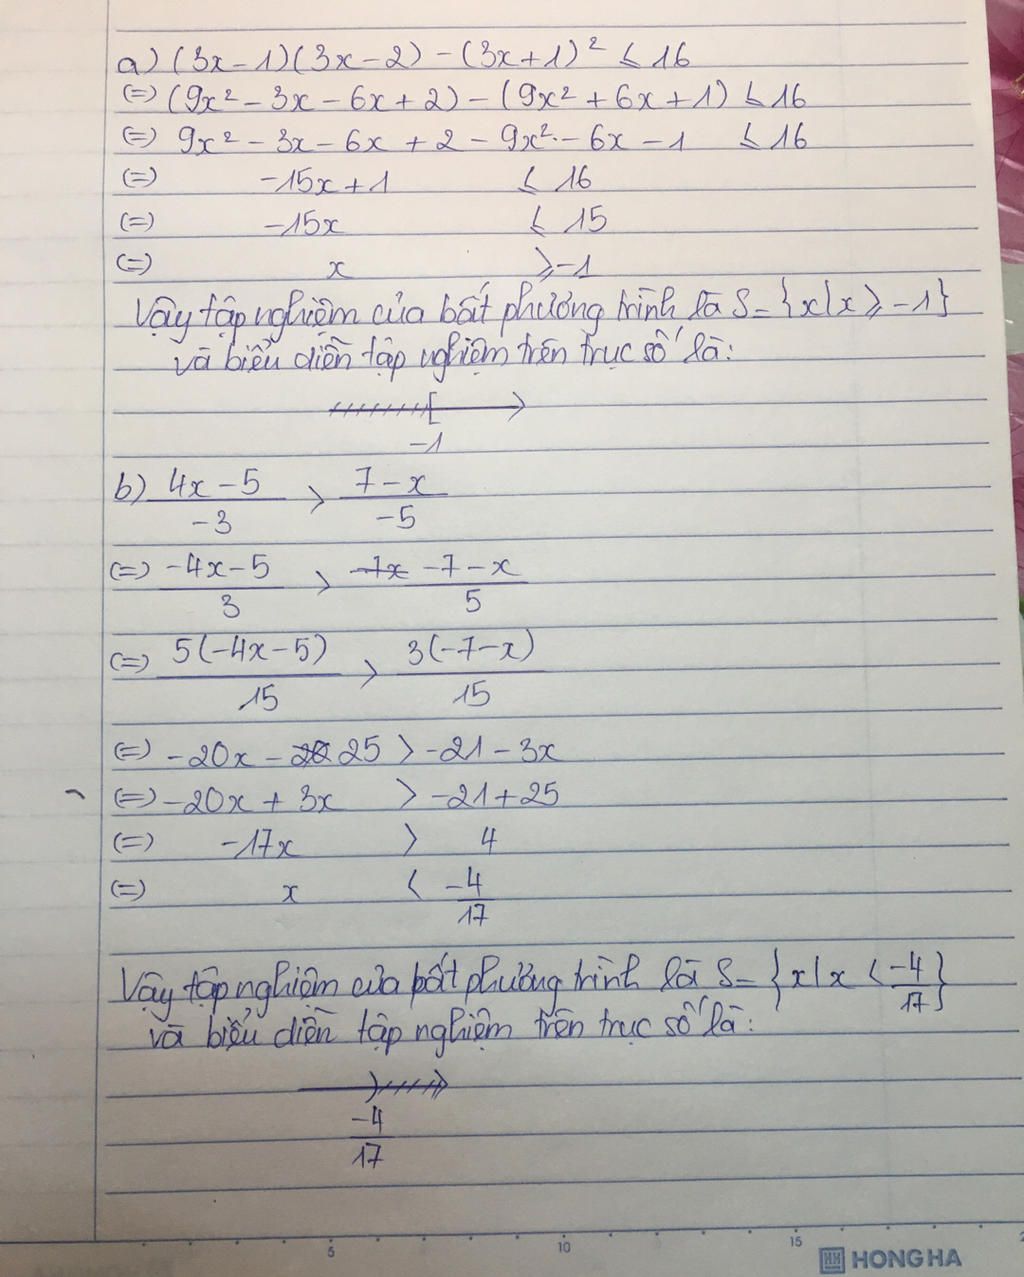 a) (3x-1)(3x-2) - (3x+1)² ≤ 16
(=) (9x² - 3x - 6x + 2) - (9x² + 6x + 1) ≤ 16
(=) 9x² - 3x - 6x + 2 - 9x² - 6x - 1 ≤ 16
(=) -15x + 1 ≤ 16
(=) -15x ≤ 15
(=) x ≥ -1
Vậy tập nghiệm của bất phương trình là S = {x/x ≥ -1}
và biểu diễn tập nghiệm trên trục số là:
-1
b) (4x - 5)/(-3) > (7 - x)/(-5)
(=) (-4x - 5)/3 > (-7 - x)/5
(=) 5(-4x - 5)/15 > 3(-7 - x)/15
(=) -20x - 25 > -21 - 3x
(=) -20x + 3x > -21 + 25
(=) -17x > 4
(=) x < -4/17
Vậy tập nghiệm của bất phương trình là S = {x/x < -4/17}
và biểu diễn tập nghiệm trên trục số là:
-4/17
5 10 15
HONG HA